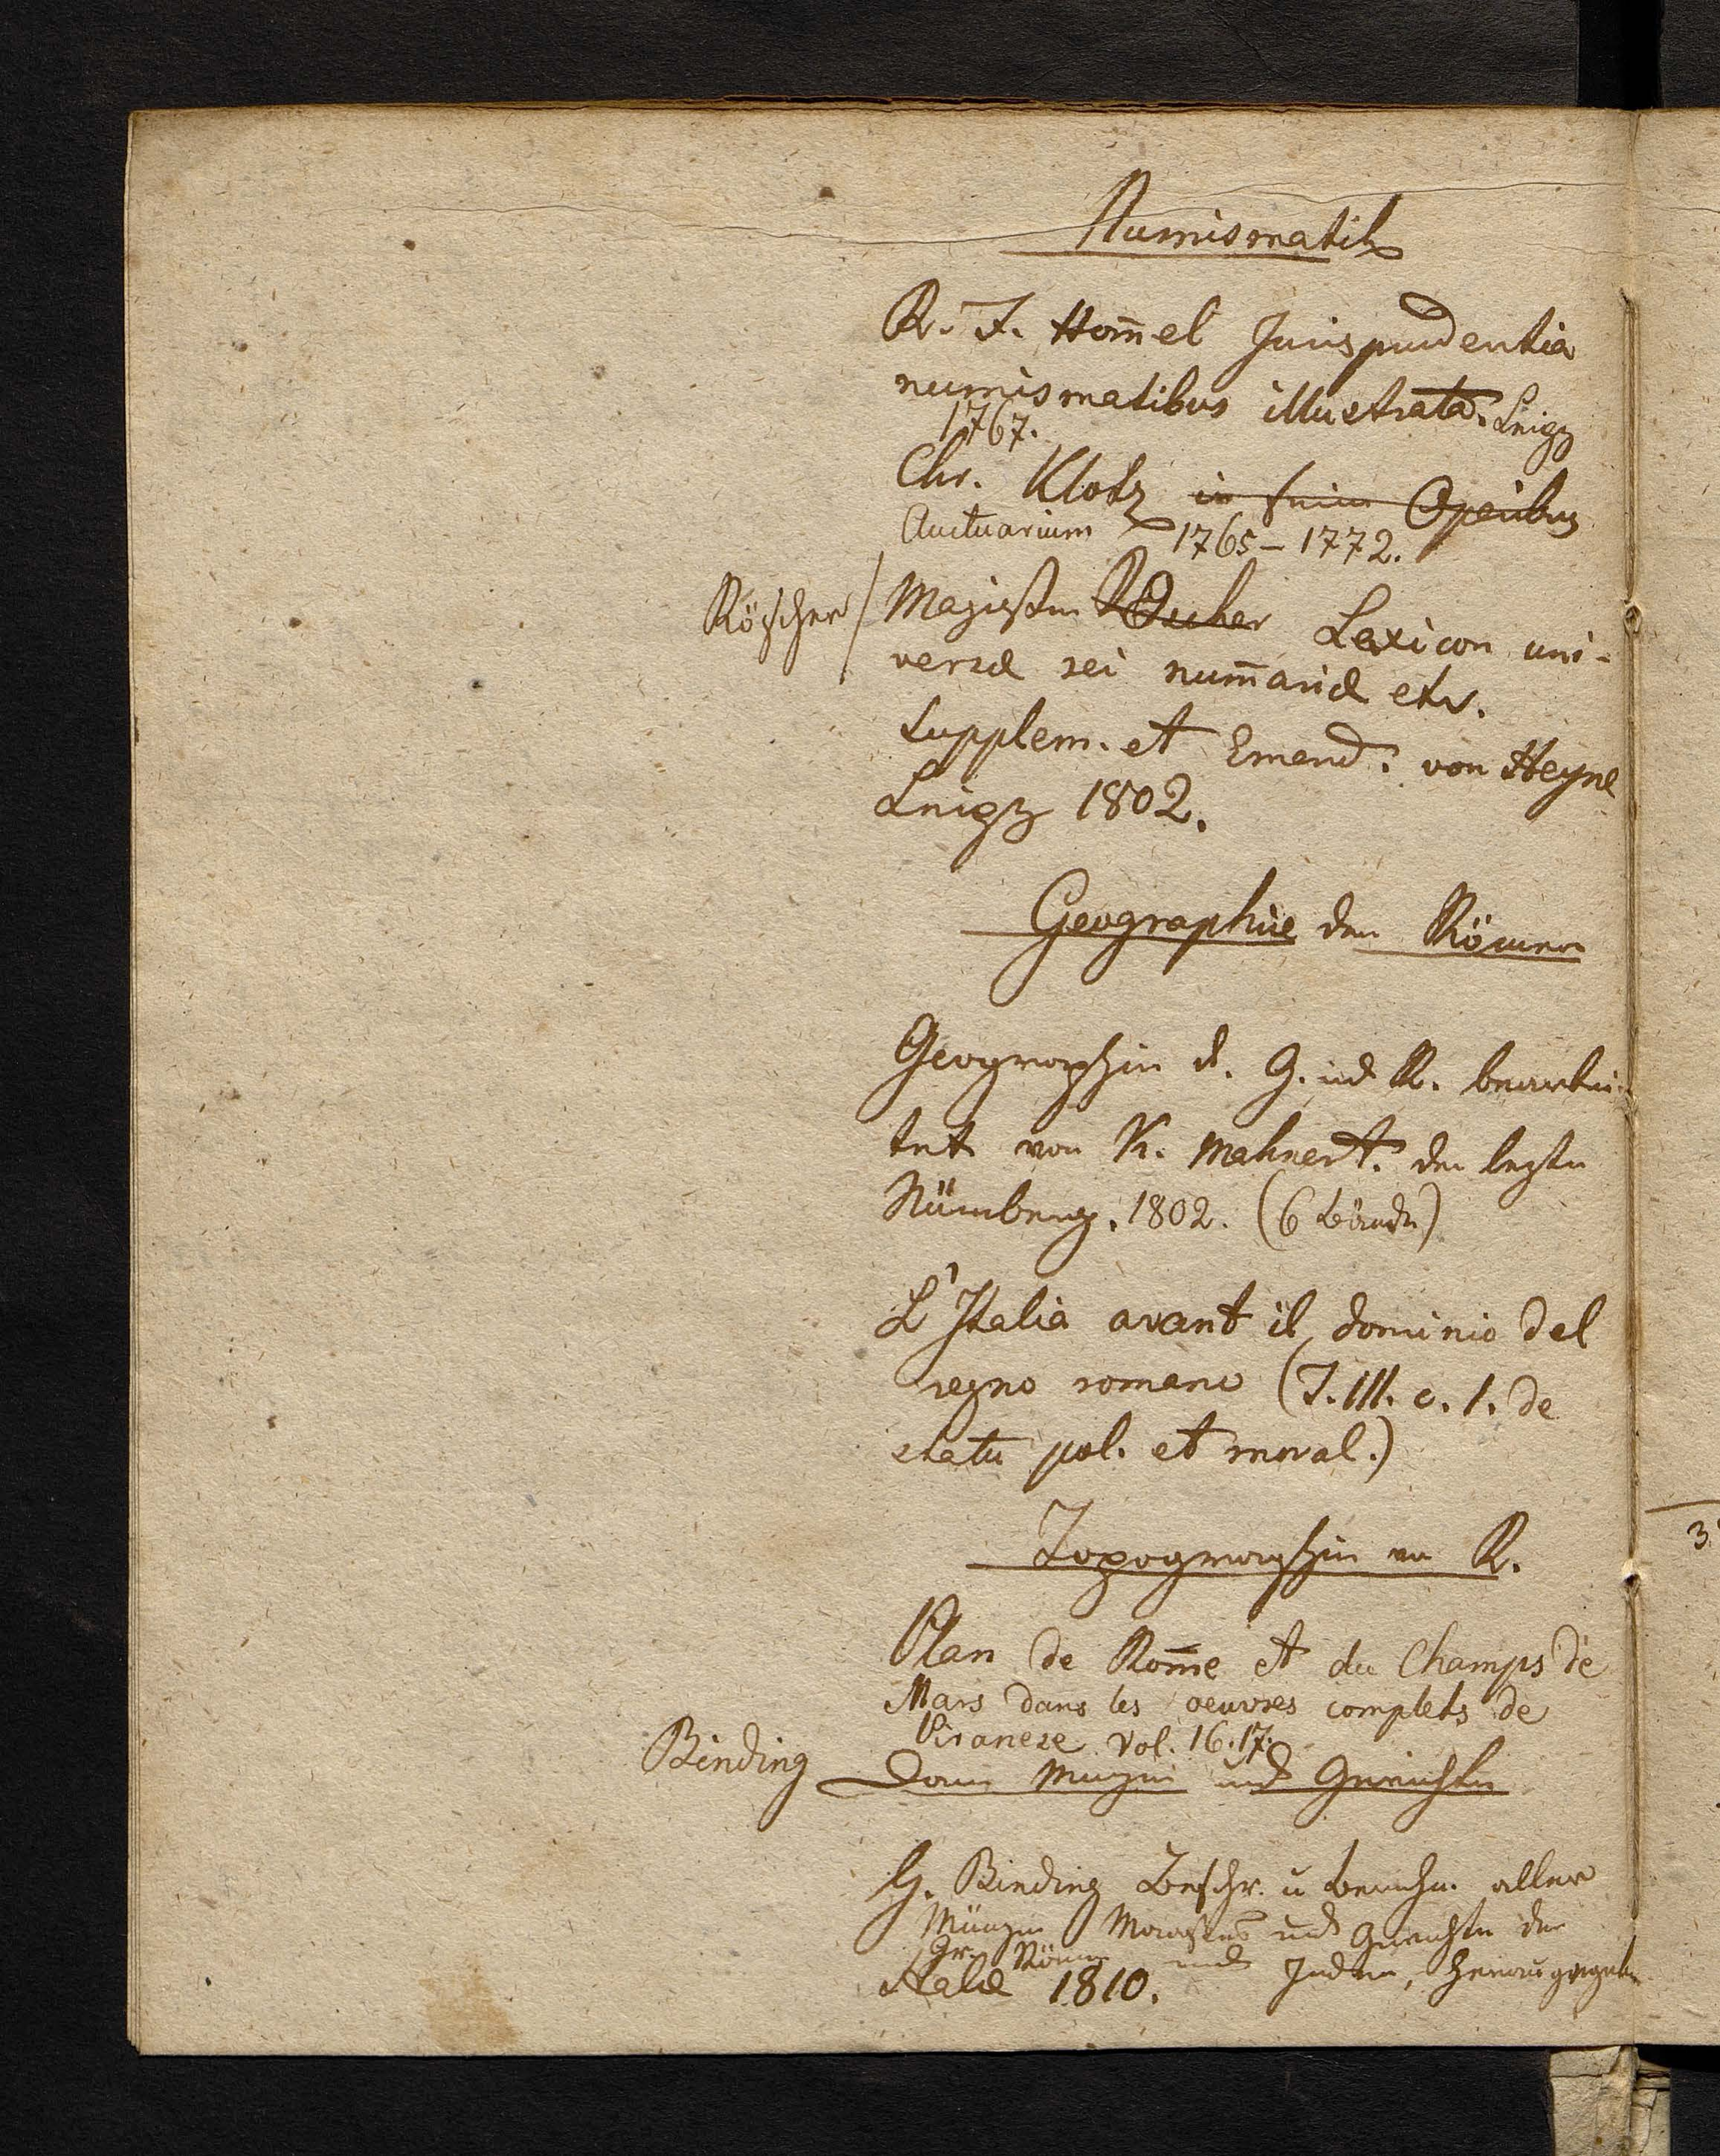 Numismatik
R. F. Hom̄el Jurisprudentia
numismatibus illustrata. Leipz
1767.
Chr. Klotz in seinen Operibus
Auctuarium 1765 – 1772.
Röscher / Magister Lexicon uni-
versæ rei num̄ariæ etc.
Supplem. et Emend. von Heyne
Leipz 1802.
Geographie der Römer
Geographie d. G. und R. bearbei-
tet von K. Mahnert. der letzte
Nürnberg. 1802. (6 Bände)
L'Italia avant il dominio del
regno romano (T. III. c. 1. de
statu pol. et moral.)
Topographie von R.
Plan de Rom̄e et du Champs de
Mars dans les oeuvres complets de
Piranese Vol. 16. 17.
Binding
und Gewichte
G. Binding Beschr. u Berechn. aller
Münzen Maaße und Gewichte der
Gr. Römer und Juden, herausgegeb
Hale 1810.
3.